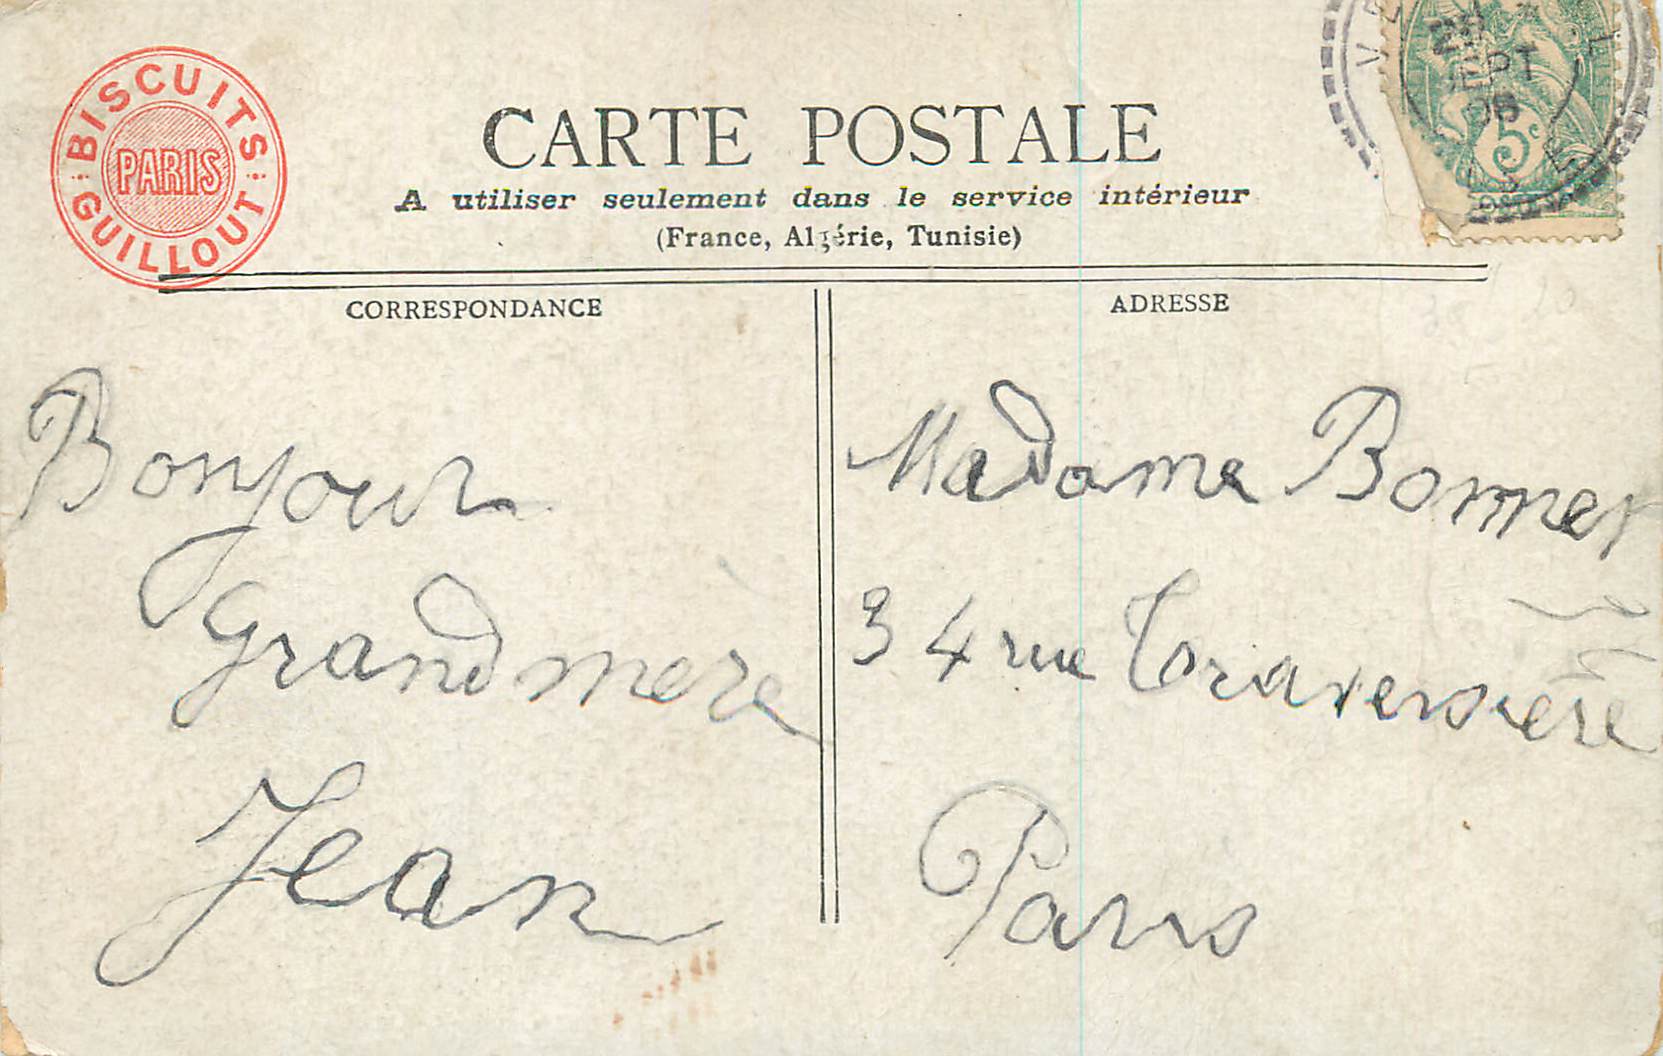 BISCUITS
PARIS
GUILLOUT
CARTE POSTALE
A utiliser seulement dans le service intérieur
(France, Algérie, Tunisie)
CORRESPONDANCE
ADRESSE
Bonjour
Grand mère
Jean
Madame Bonnet
34 rue Traversière
Paris
SEPT
5c